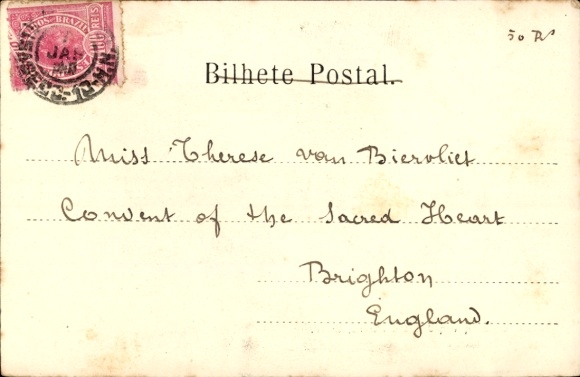 50 Rs
JAN
Bilhete Postal.
Miss Therese van Biervliet
Convent of the Sacred Heart
Brighton
England.